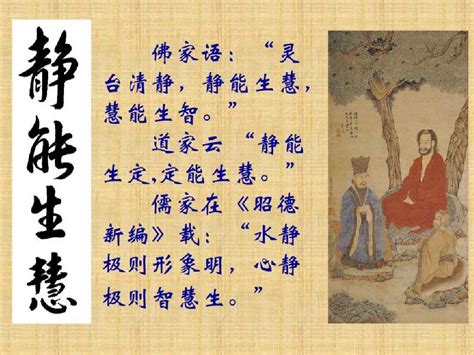 静能生慧
佛家语：“灵
台清静，静能生慧，
慧能生智。”
道家云 “静能
生定,定能生慧。”
儒家在《昭德
新编》载：“水静
极则形象明，心静
极则智慧生。”